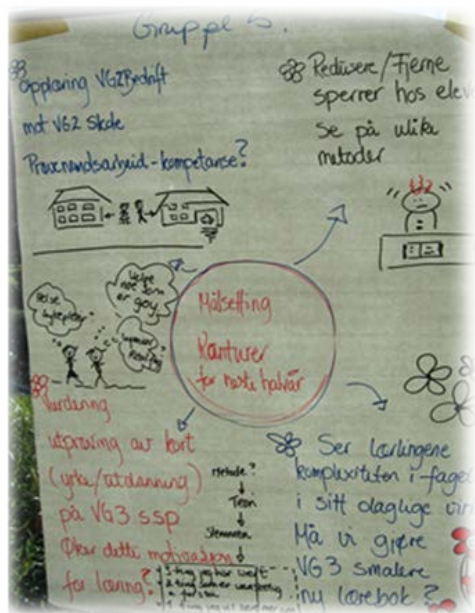 Gruppe 5.
Opplæring VG2 Bedrift
mot VG2 Skole
Prøvenemdsarbeid - kompetanse?
Redusere/Fjerne
sperrer hos eleve
Se på ulike
metoder
Velge
noe som
er gøy
Helse
Målsetting
Konturer
for neste halvår
Vurdering
utprøving av kort
(yrke/utdanning)
på VG3 ssp
Øker dette motivasjon
for læring?
Metode?
Teori
Stemmen
5 ting jeg har lært
Ser lærlingene
kompleksiteten i-faget
i sitt daglige vir
Må vi gjøre
VG3 smalere
nu lærebok?